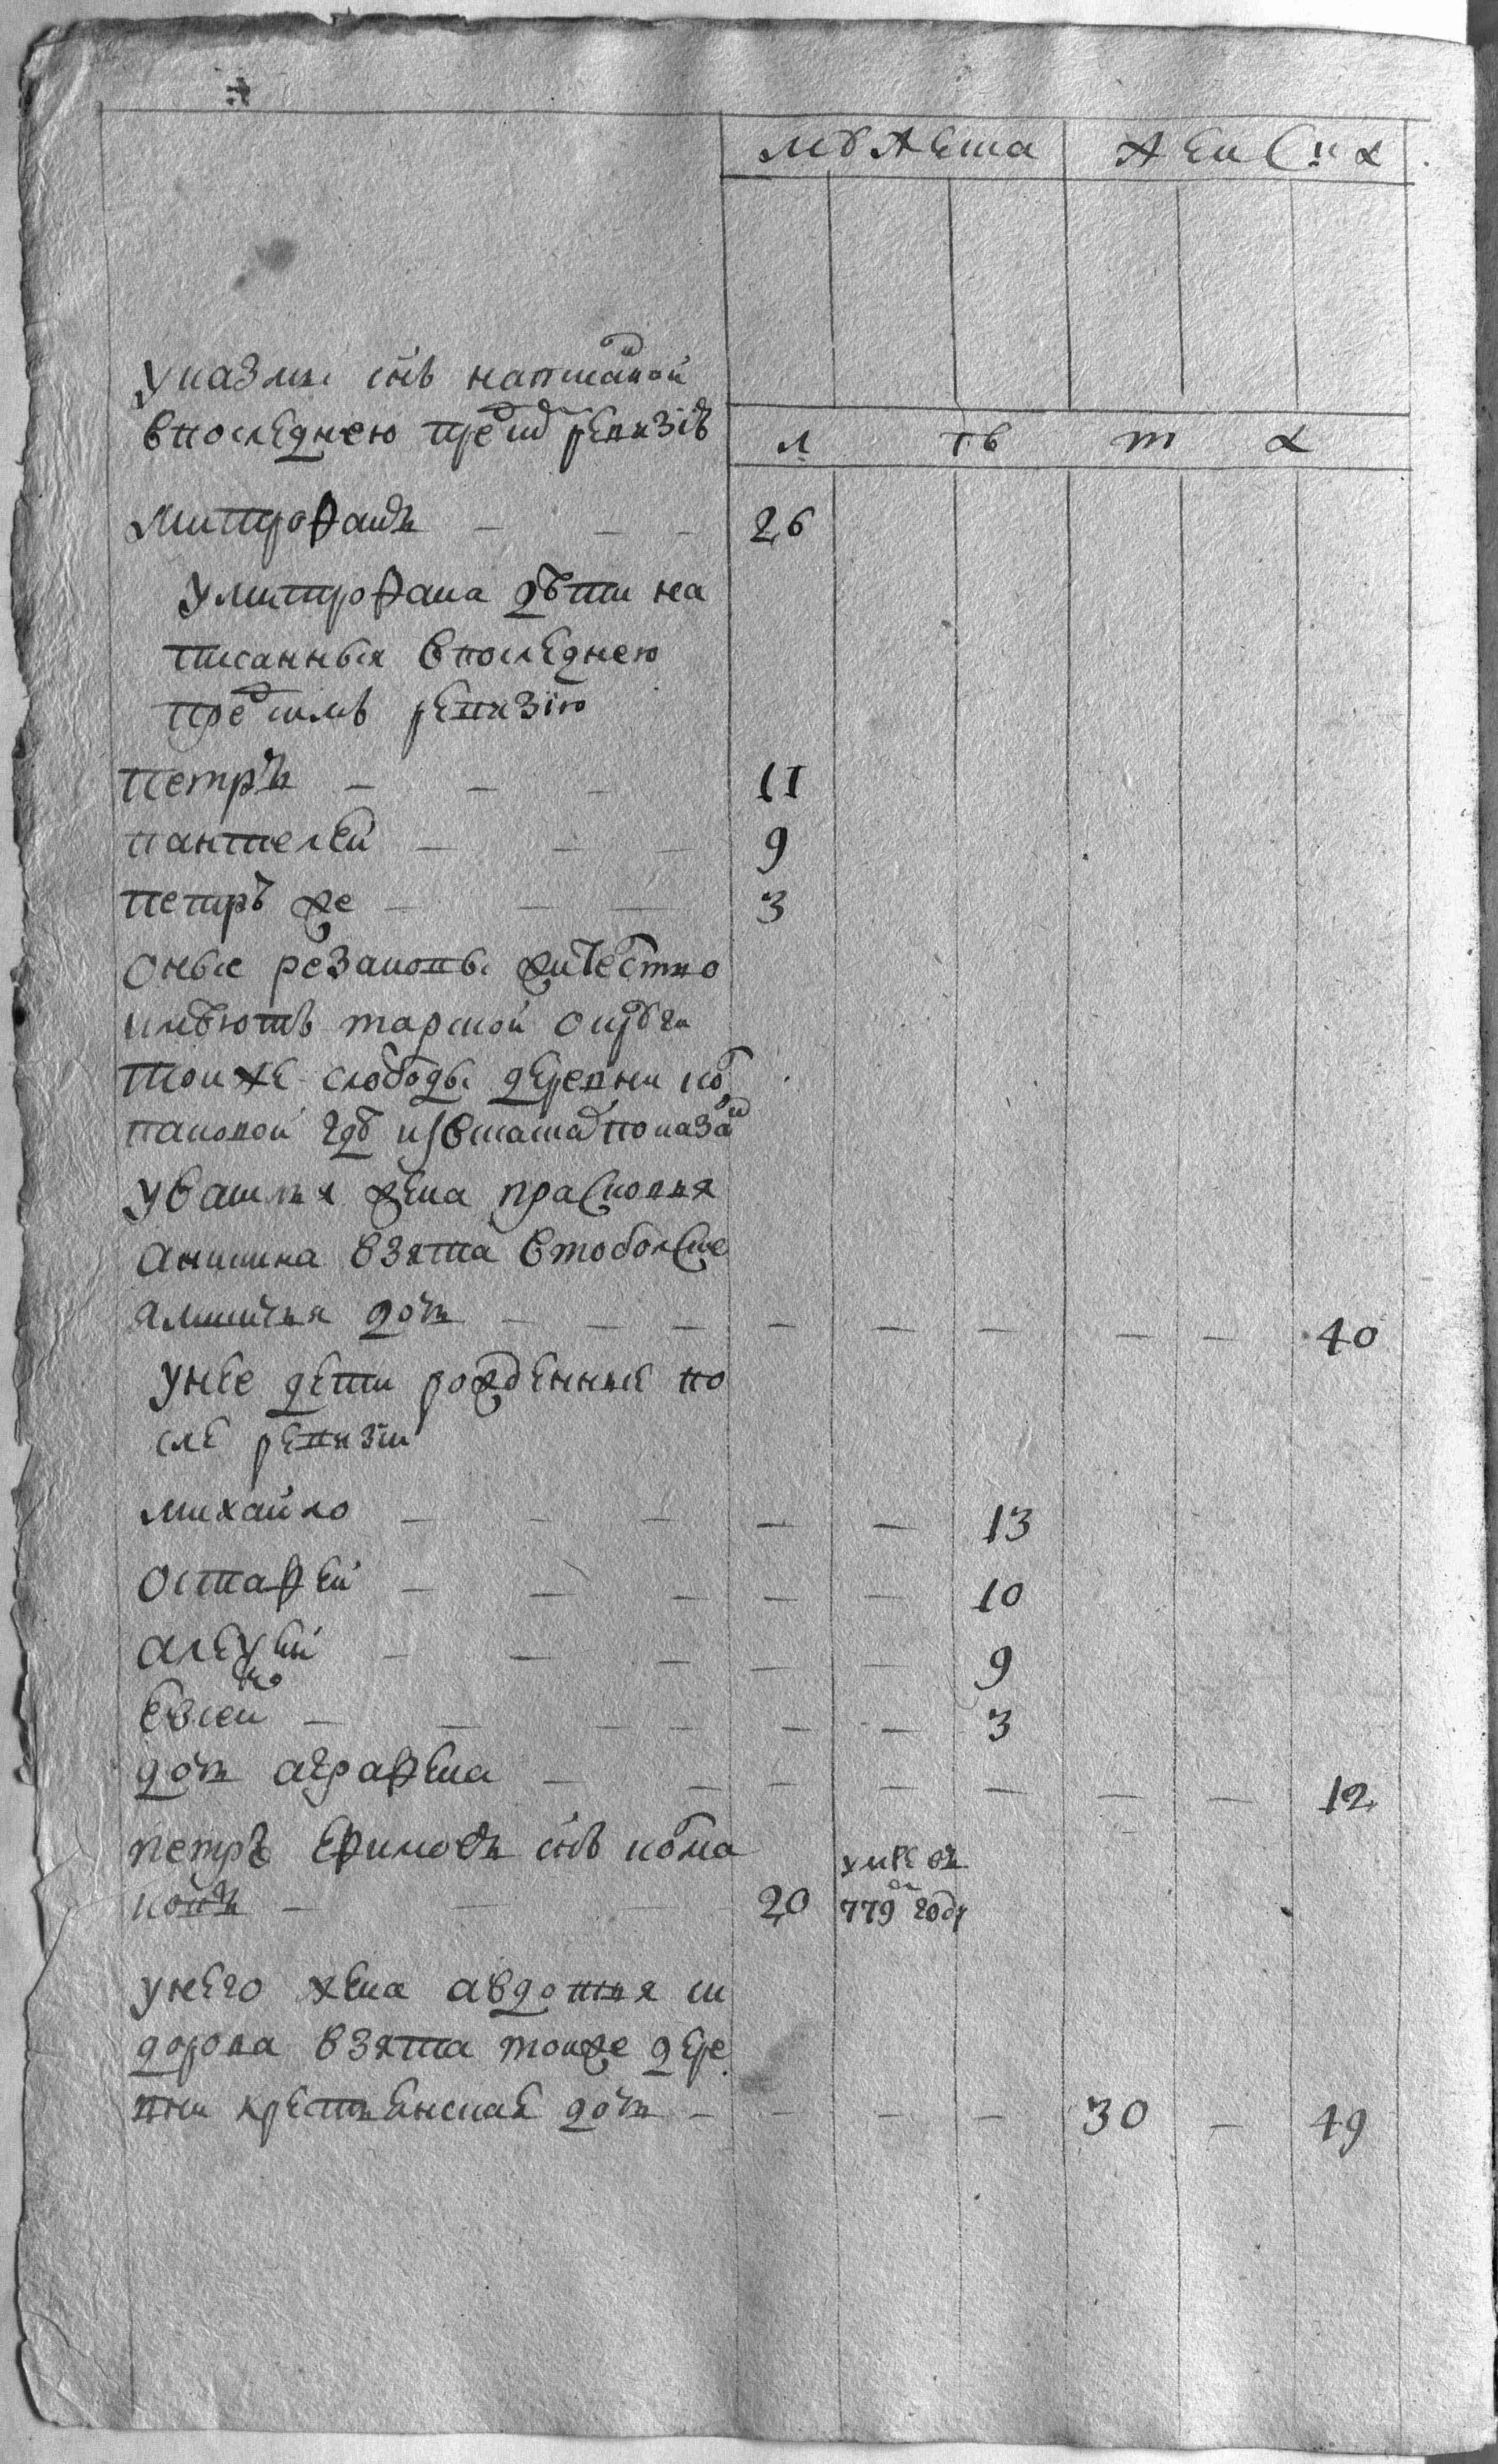 мужеска женска
у казмы сынъ написаной
в последнею пред ревизiю
л тъ т а
митрофанъ — — — 26
у митрофана дѣти на
писанныя в последнею
пред симъ ревизiю
петръ — — — 11
пантелей — — — 9
петръ же — — — 3
оные резановы жителство
имѣютъ тарской округи
тои же слободы деревни
где показа
у василья жена прасковья
аникина взята в тоболске
ямщичья дочь — — — — — — — — 40
у нее дети рожденные по
сле ревизiи
михайло — — — — — 13
остафей — — — — — 10
алеѯей — — — — — 9
евсейко — — — — — — 3
дочь аграфена — — — — — — — 12
петръ ефимовъ сынъ
ковъ — — — 20 779 году
у него жена авдотья си
дорова взята тоиже дере
вни крестьянская дочь — — — — 30 — 49